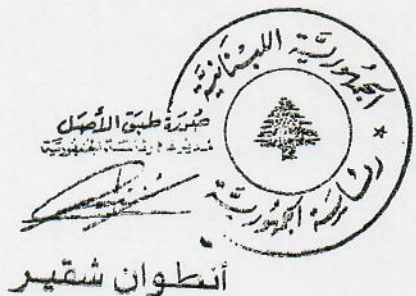 الجمهورية اللبنانية
رئاسة الجمهورية
صورة طبق الأصل
مديرية رئاسة الجمهورية
أنطوان شقير